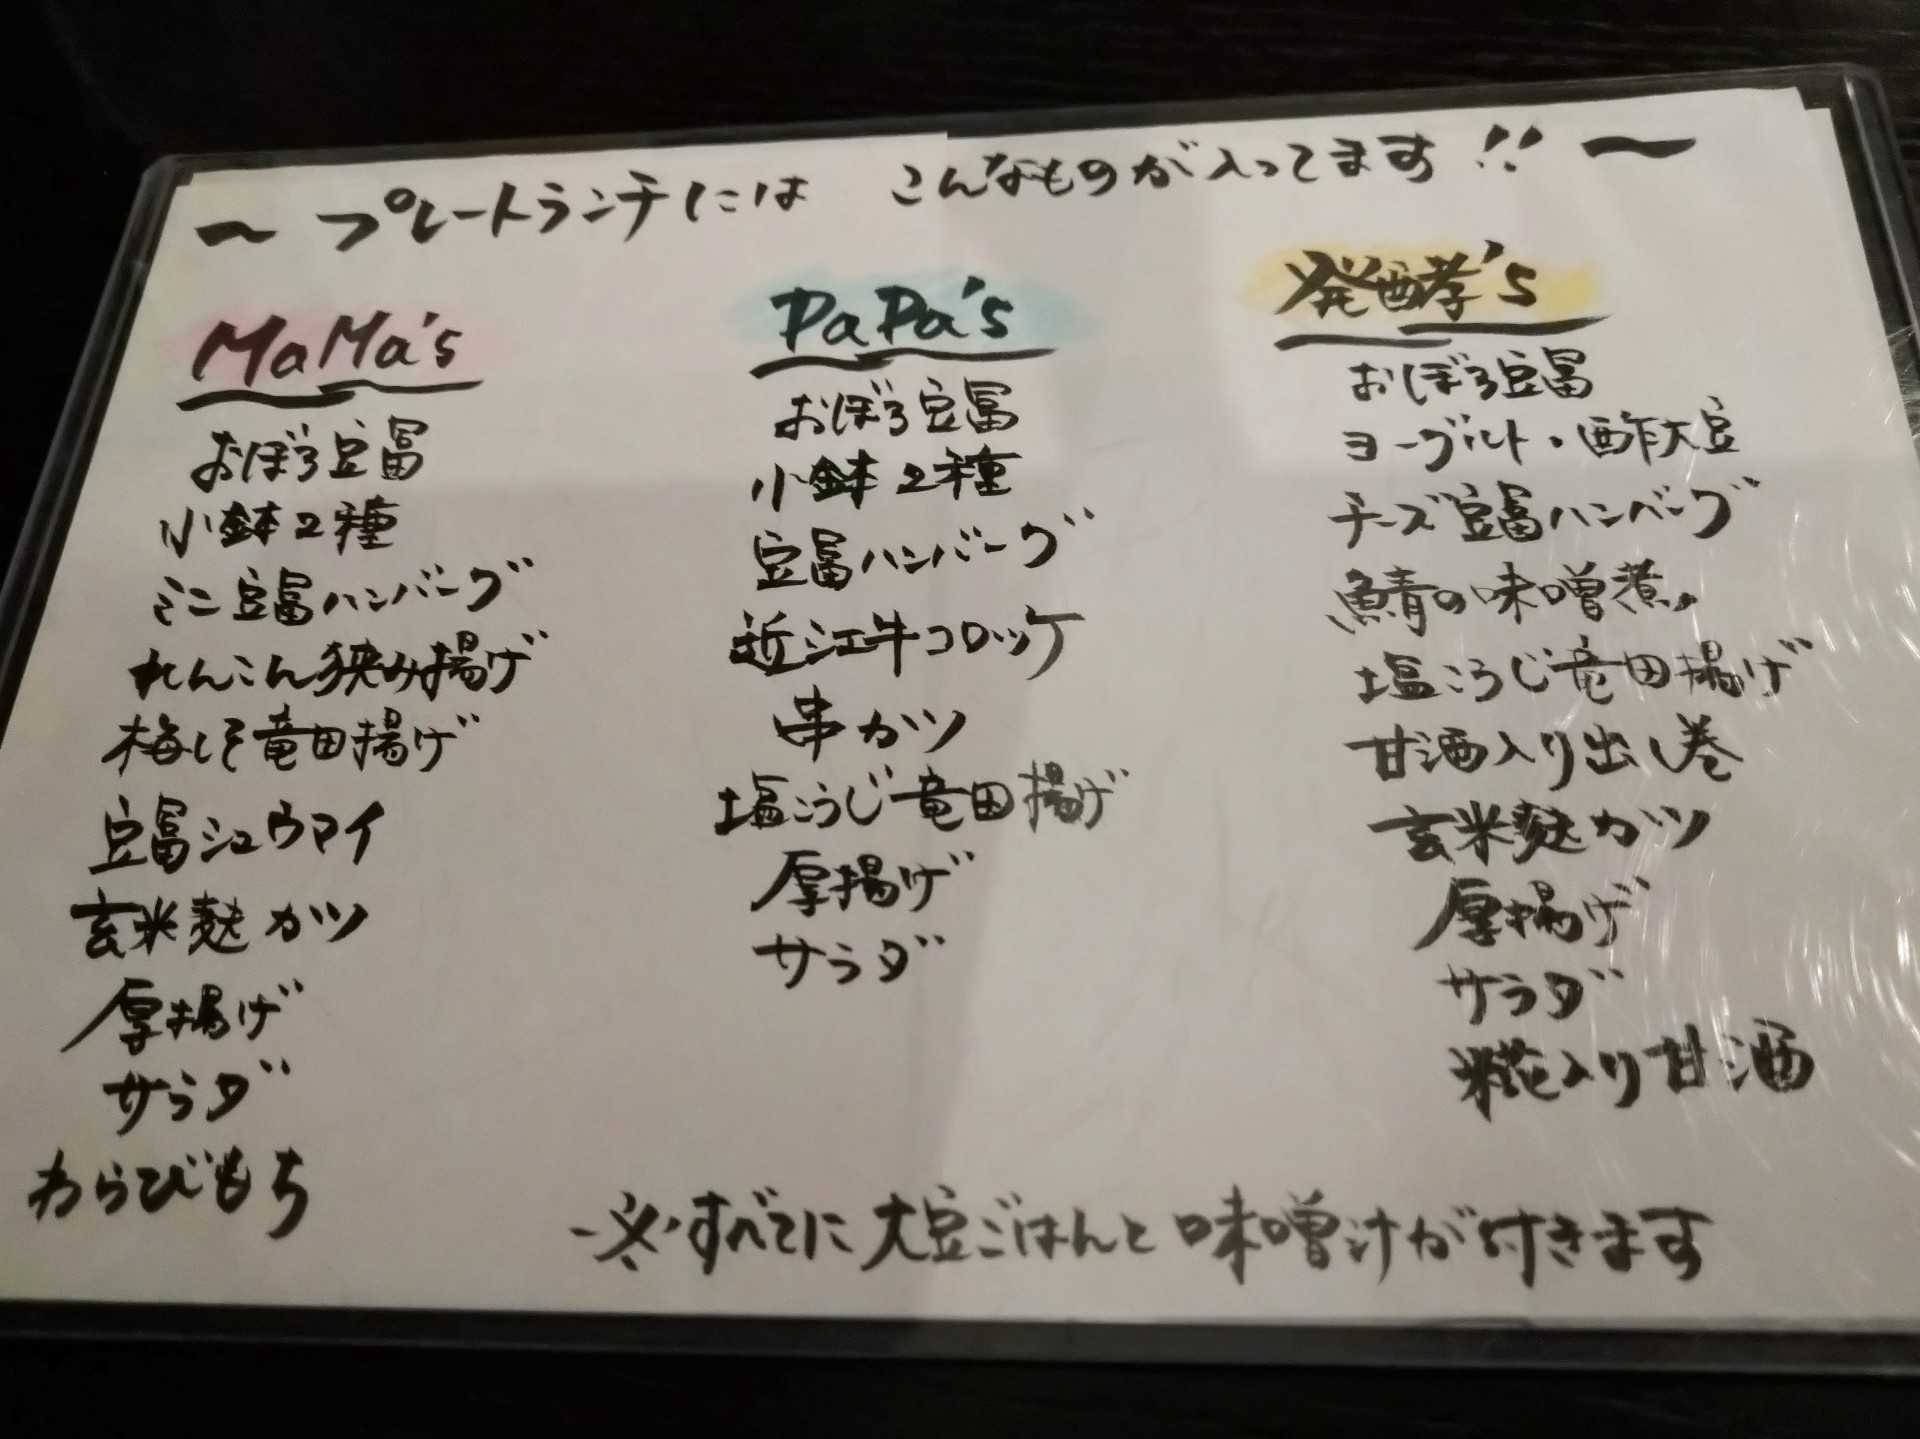 ～ プレートランチには こんなものが入ってます!! ～
MaMa's
おぼろ豆冨
小鉢2種
ミニ豆冨ハンバーグ
れんこん狭み揚げ
梅しそ竜田揚げ
豆冨シュウマイ
玄米麩カツ
厚揚げ
サラダ
わらびもち
PaPa's
おぼろ豆冨
小鉢2種
豆冨ハンバーグ
近江牛コロッケ
串カツ
塩こうじ竜田揚げ
厚揚げ
サラダ
発酵's
おぼろ豆冨
ヨーグルト・酢大豆
チーズ豆冨ハンバーグ
鯖の味噌煮
塩こうじ竜田揚げ
甘酒入り出し巻
玄米麩カツ
厚揚げ
サラダ
糀入り甘酒
※すべてに大豆ごはんと味噌汁が付きます